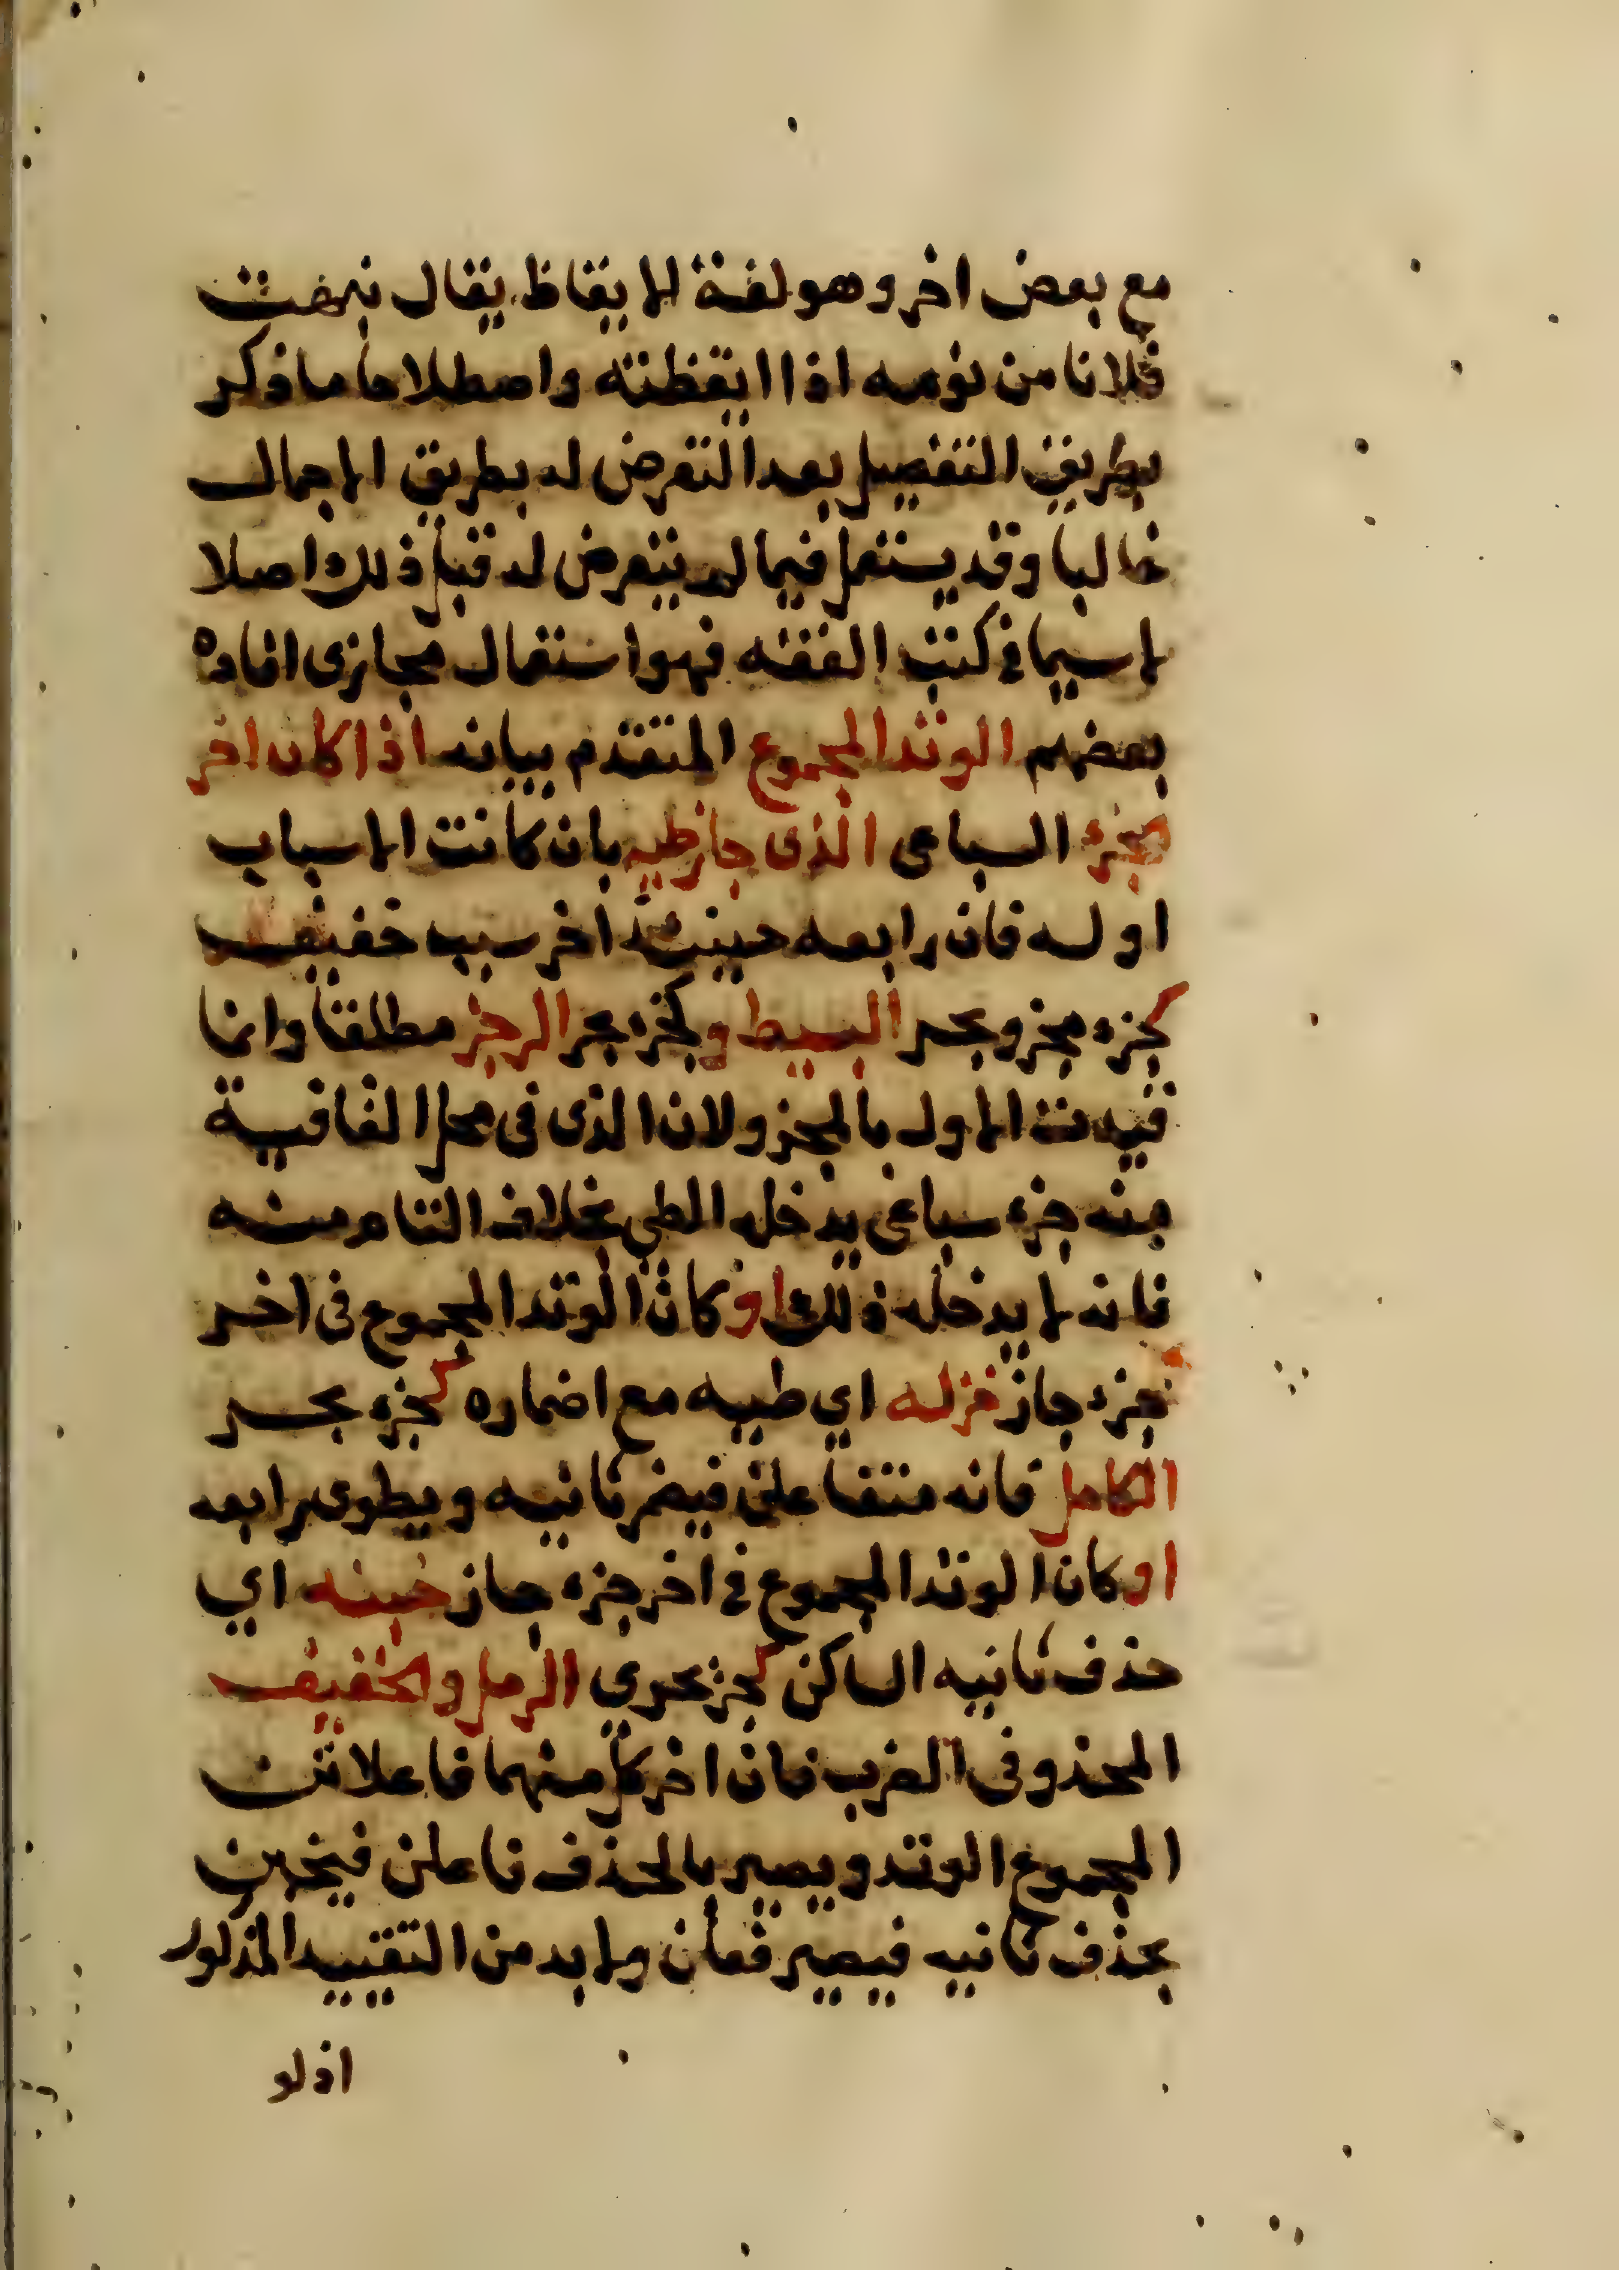 مع بعض اخر وهو لغة الايقاظ يقال نبهت
فلانا من نومه اذا ايقظته واصطلاحا ما ذكر
بطريق التفصيل بعد التعرض له بطريق الاجمال
غالبا وقد يستعمل فيما لم يتعرض له قبل ذلك اصلا
لاسيما في كتب الفقه فهو استعمال مجازى افاده
بعضهم الوتد المجموع المتقدم بيانه اذا كان اخر
جزء السباعى الذى جاز طيه بان كانت الاسباب
اوله فان رابعه حينئذ اخر سبب خفيف
كجزء مجزو بحر البسيط وكجزء بحر الرجز مطلقا وانما
قيدت الاول بالمجزو لان الذى فى محل القافية
منه جزء سباعى يدخله الطي بخلاف التام منه
فانه لا يدخله ذلك او كان الوتد المجموع فى اخر
جزء جاز خزله اي طيه مع اضماره كجزء بحر
الكامل فانه متفاعلن فيضمر ثانيه ويطوى رابعه
او كان الوتد المجموع في اخر جزء جاز خبنه اي
حذف ثانيه الساكن كجز بحري الرمل والخفيف
المحذوفى الضرب فان اخر كل منهما فاعلاتن
المجموع الوتد ويصير بالحذف فاعلن فيخبن
بحذف ثانيه فيصير فعلن ولا بد من التقييد المذكور
اذ لو